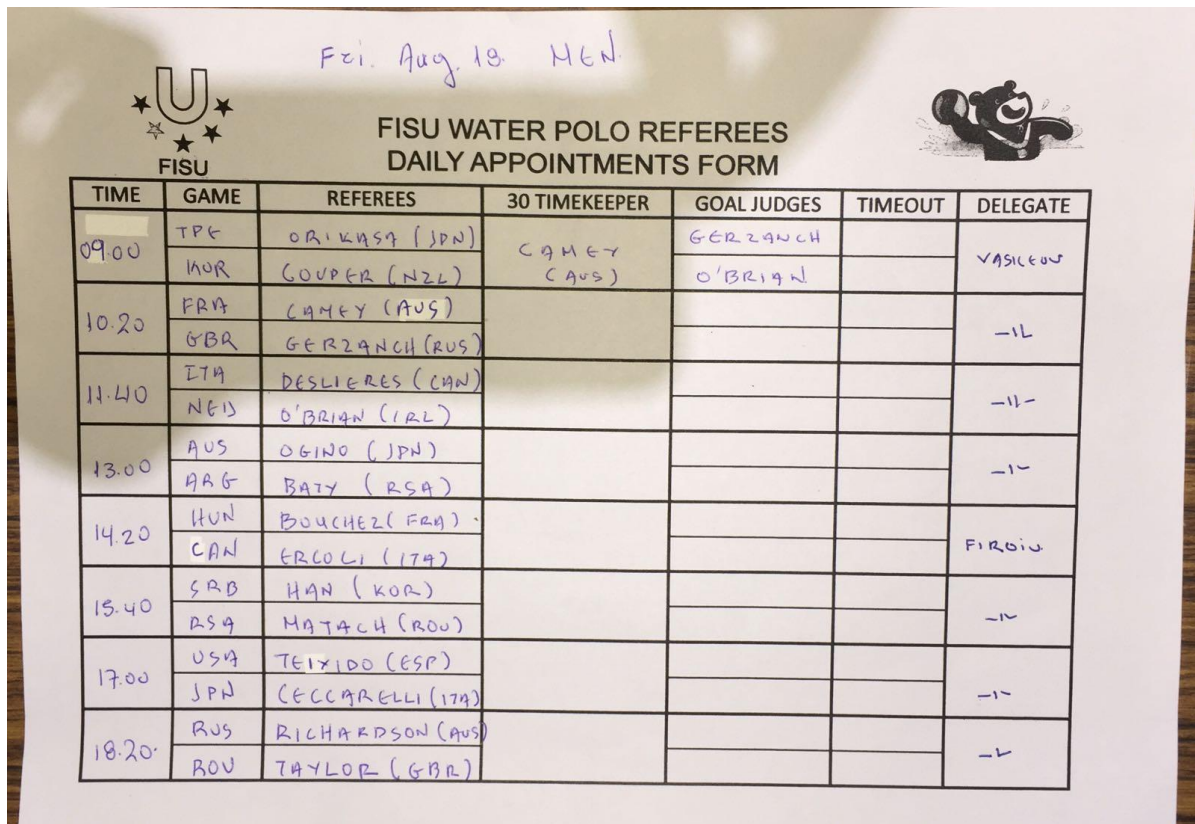 Fri. Aug. 18. MEN.
FISU
FISU WATER POLO REFEREES
DAILY APPOINTMENTS FORM
TIME GAME REFEREES 30 TIMEKEEPER GOAL JUDGES TIMEOUT DELEGATE
09.00 TPE ORIKASA (JPN) CAMEY (AUS) GERZANCH VASILEOU
KOR COUPER (NZL) O'BRIAN
10.20 FRA CAMEY (AUS) -11-
GBR GERZANCH (RUS)
11.40 ITA DESLIERES (CAN) -11-
NED O'BRIAN (IRL)
13.00 AUS OGINO (JPN) -11-
ARG BATY (RSA)
14.20 HUN BOUCHEZ (FRA)
CAN ERCOLI (ITA)
15.40 SRB HAN (KOR) -11-
RSA MATACH (ROU)
17.00 USA TEIXIDO (ESP) -11-
JPN CECCARELLI (ITA)
18.20 RUS RICHARDSON (AUS) -11-
ROU TAYLOR (GBR)